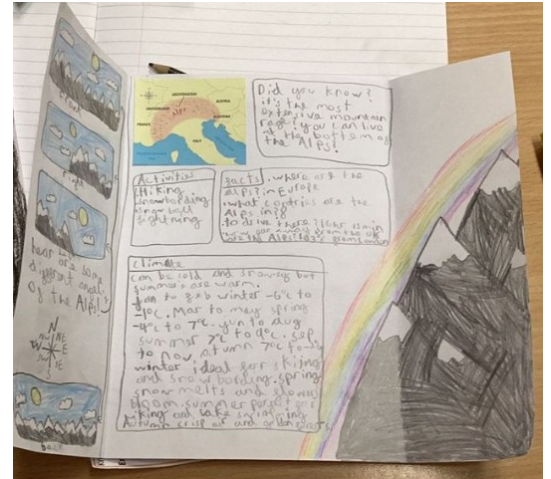 front
right
left
hear are some
different angels
of the Alps!
N
NW NE
W E
SW SE
S
back
ALPS
FRANCE
ITALY
AUSTRIA
Did you know?
it's the most
extensive mountain
range? you can live
at the bottom of
the Alps?
Activities
Hiking
snowbording
snow ball
fightning
facts
. where are the
Alps? in Europe
. what contries are the
Alps in? 8
to drive there?
away from the
are the Alps?
climate
can be cold and snowey but
summers are warm.
to feb winter -6°c to
Mar to may spring
-4°c to 7°c. jun to aug
summer 7°c to 9°c. sep
to nov, atumn 7°c to
winter ideal for skiing
and snowbording. spring
snow melts and flowers
bloom. summer perfect for
hiking and lake swimming
Autumn crisp air and golden